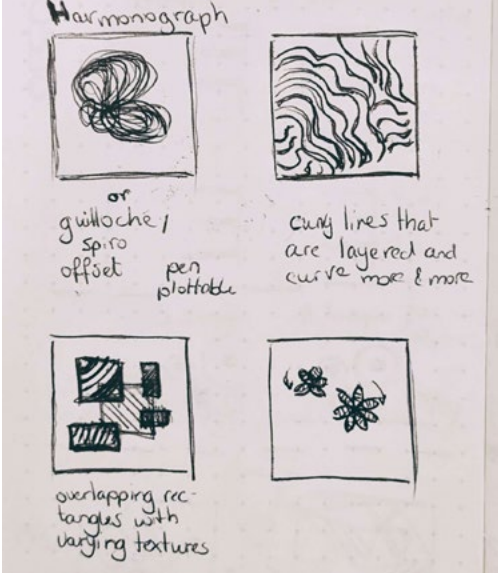 Harmonograph
or
guilloché/
spiro
offset
pen
plottable
curvy lines that
are layered and
curve more & more
overlapping rec-
tangles with
varying textures